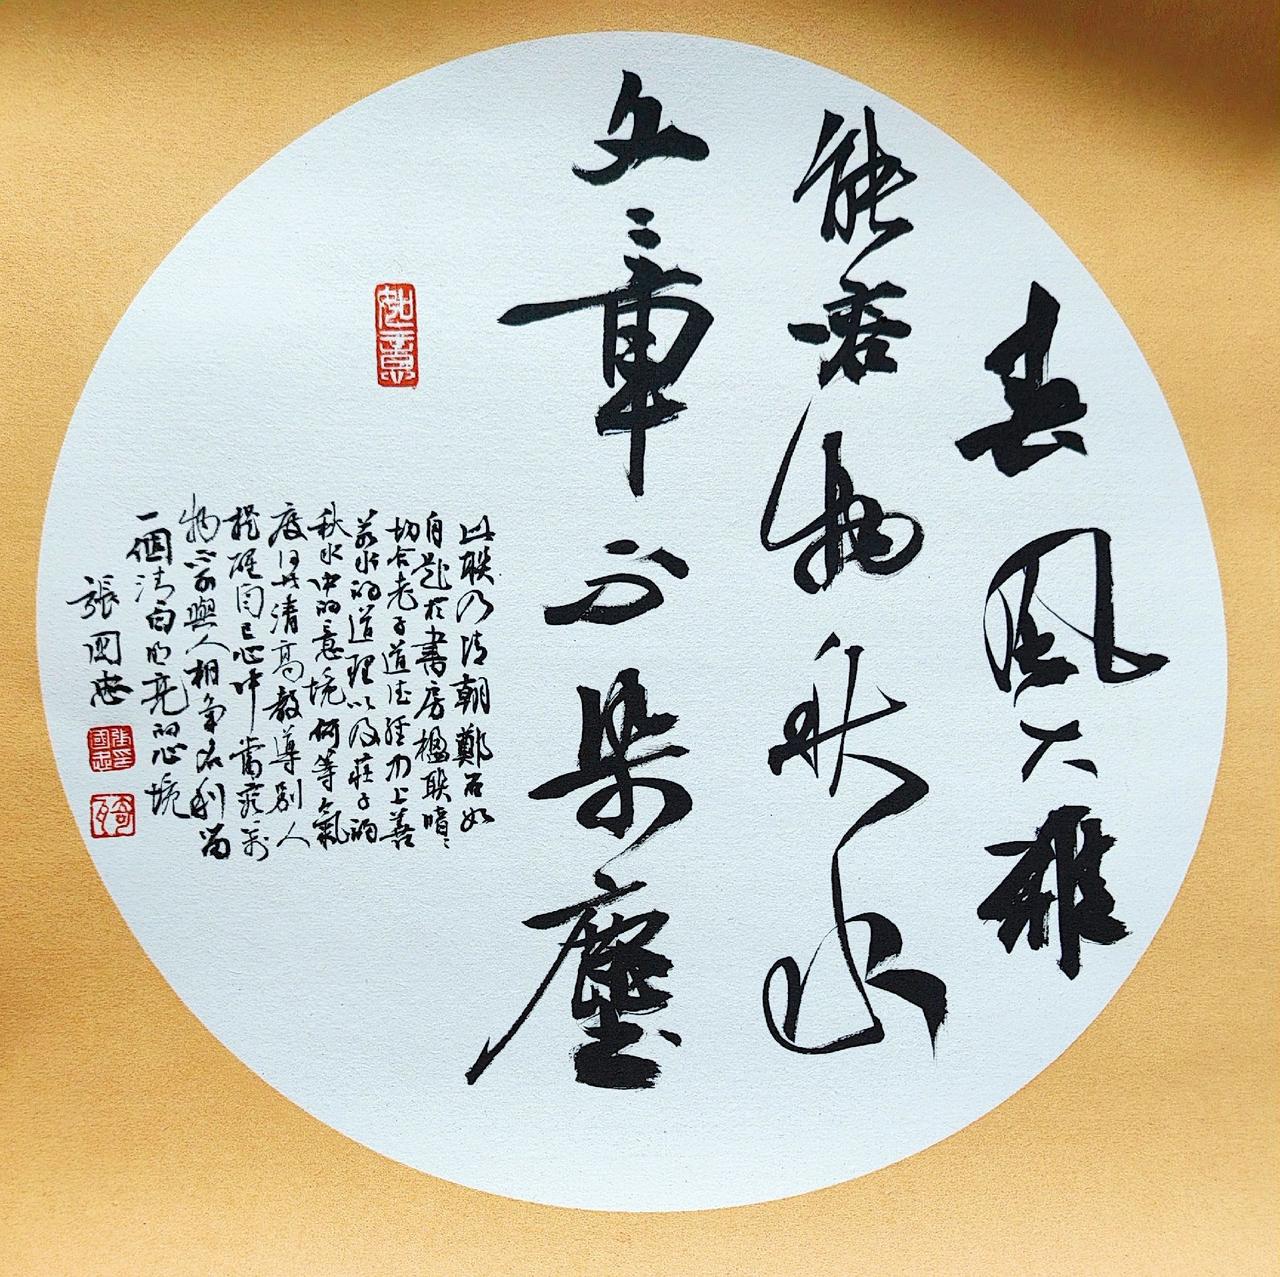 春風大雅
能容物秋水
文章不染塵
此联乃清朝鄭石如
自题於書房楹联暗〻
切合老子道德经中上善
若水的道理以及莊子的
秋水中的意境何等氣
度何其清高教導别人
提醒自己心中當容万
物不與人相争名利留
一個清白明亮的心境
張國忠
如意
張國忠印